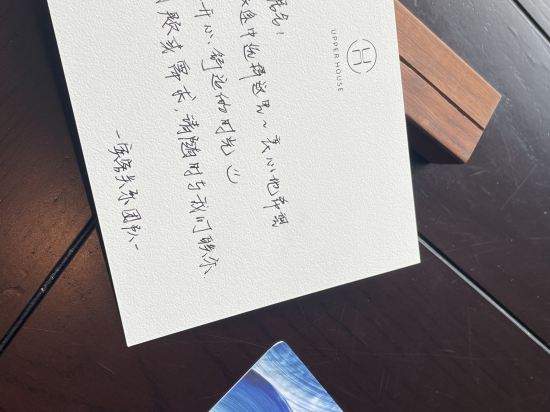 UPPER HOUSE
途中选择这里~衷心地希望
开心、舒适的时光
题或需求,请随时与我们联系
-宾客关系团队-